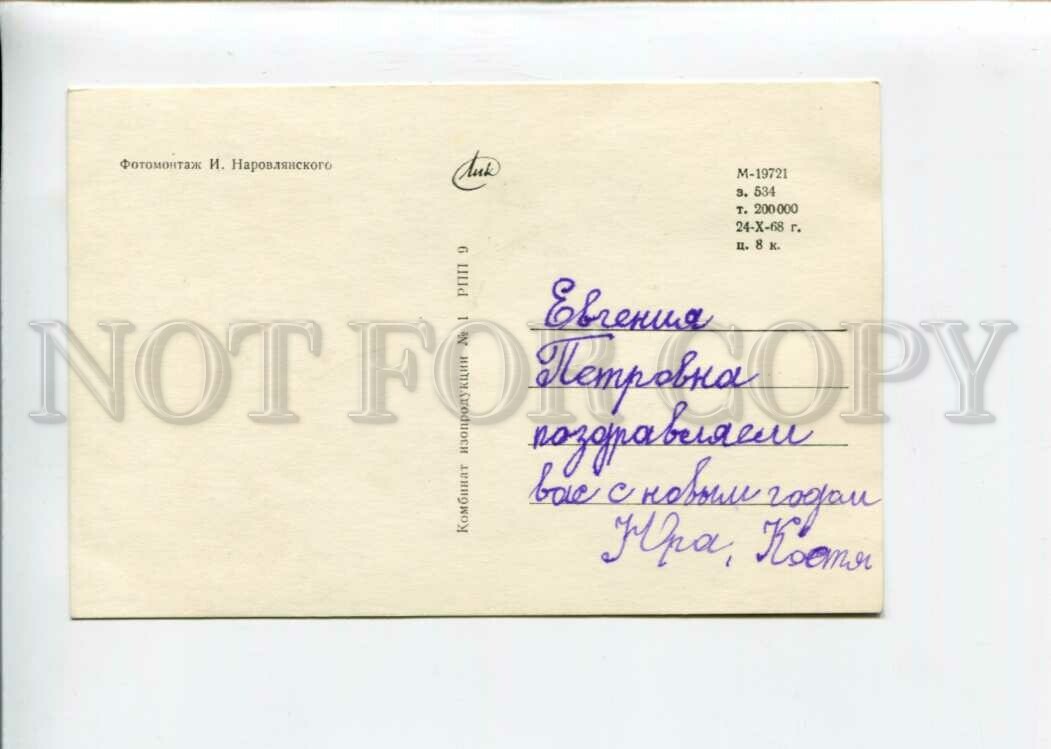 Фотомонтаж И. Наровлянского
Лик
М-19721
з. 534
т. 200 000
24-X-68 г.
ц. 8 к.
Комбинат изопродукции № 1 РПП 9
Евгения
Петровна
поздравляем
вас с новым годом
Ира, Костя
NOT FOR COPY